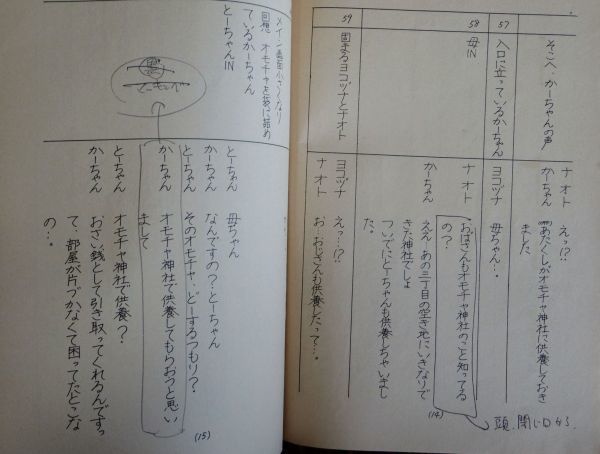 そこへ、かーちゃんの声
ナオト えっ!?
かーちゃん あたくしがオモチャ神社に供養しておき
ました
57
入口に立っているかーちゃん
ヨコヅナ 母ちゃん…。
58
母IN
ナオト おばさんもオモチャ神社のこと知ってる
の？
かーちゃん ええ、あの三丁目の空き地にいきなりで
きた神社でしょ
ついでにとーちゃんも供養しちゃいまし
た。
59
固まるヨコヅナとナオト
ヨコヅナ えっ…!?
ナオト お…おじさんも供養したって…。
(14)
頭、閉じ口から
メイン画面小さくなり
回想 オモチャを袋に詰め
ているかーちゃん
とーちゃんIN
とーちゃん 母ちゃん
かーちゃん なんですの？とーちゃん
とーちゃん そのオモチャ、どーするつもり？
かーちゃん オモチャ神社で供養してもらおうと思い
まして
とーちゃん オモチャ神社で供養？
かーちゃん おさい銭として引き取ってくれるんですっ
て、部屋が片づかなくて困ってたとこな
の…。
(15)